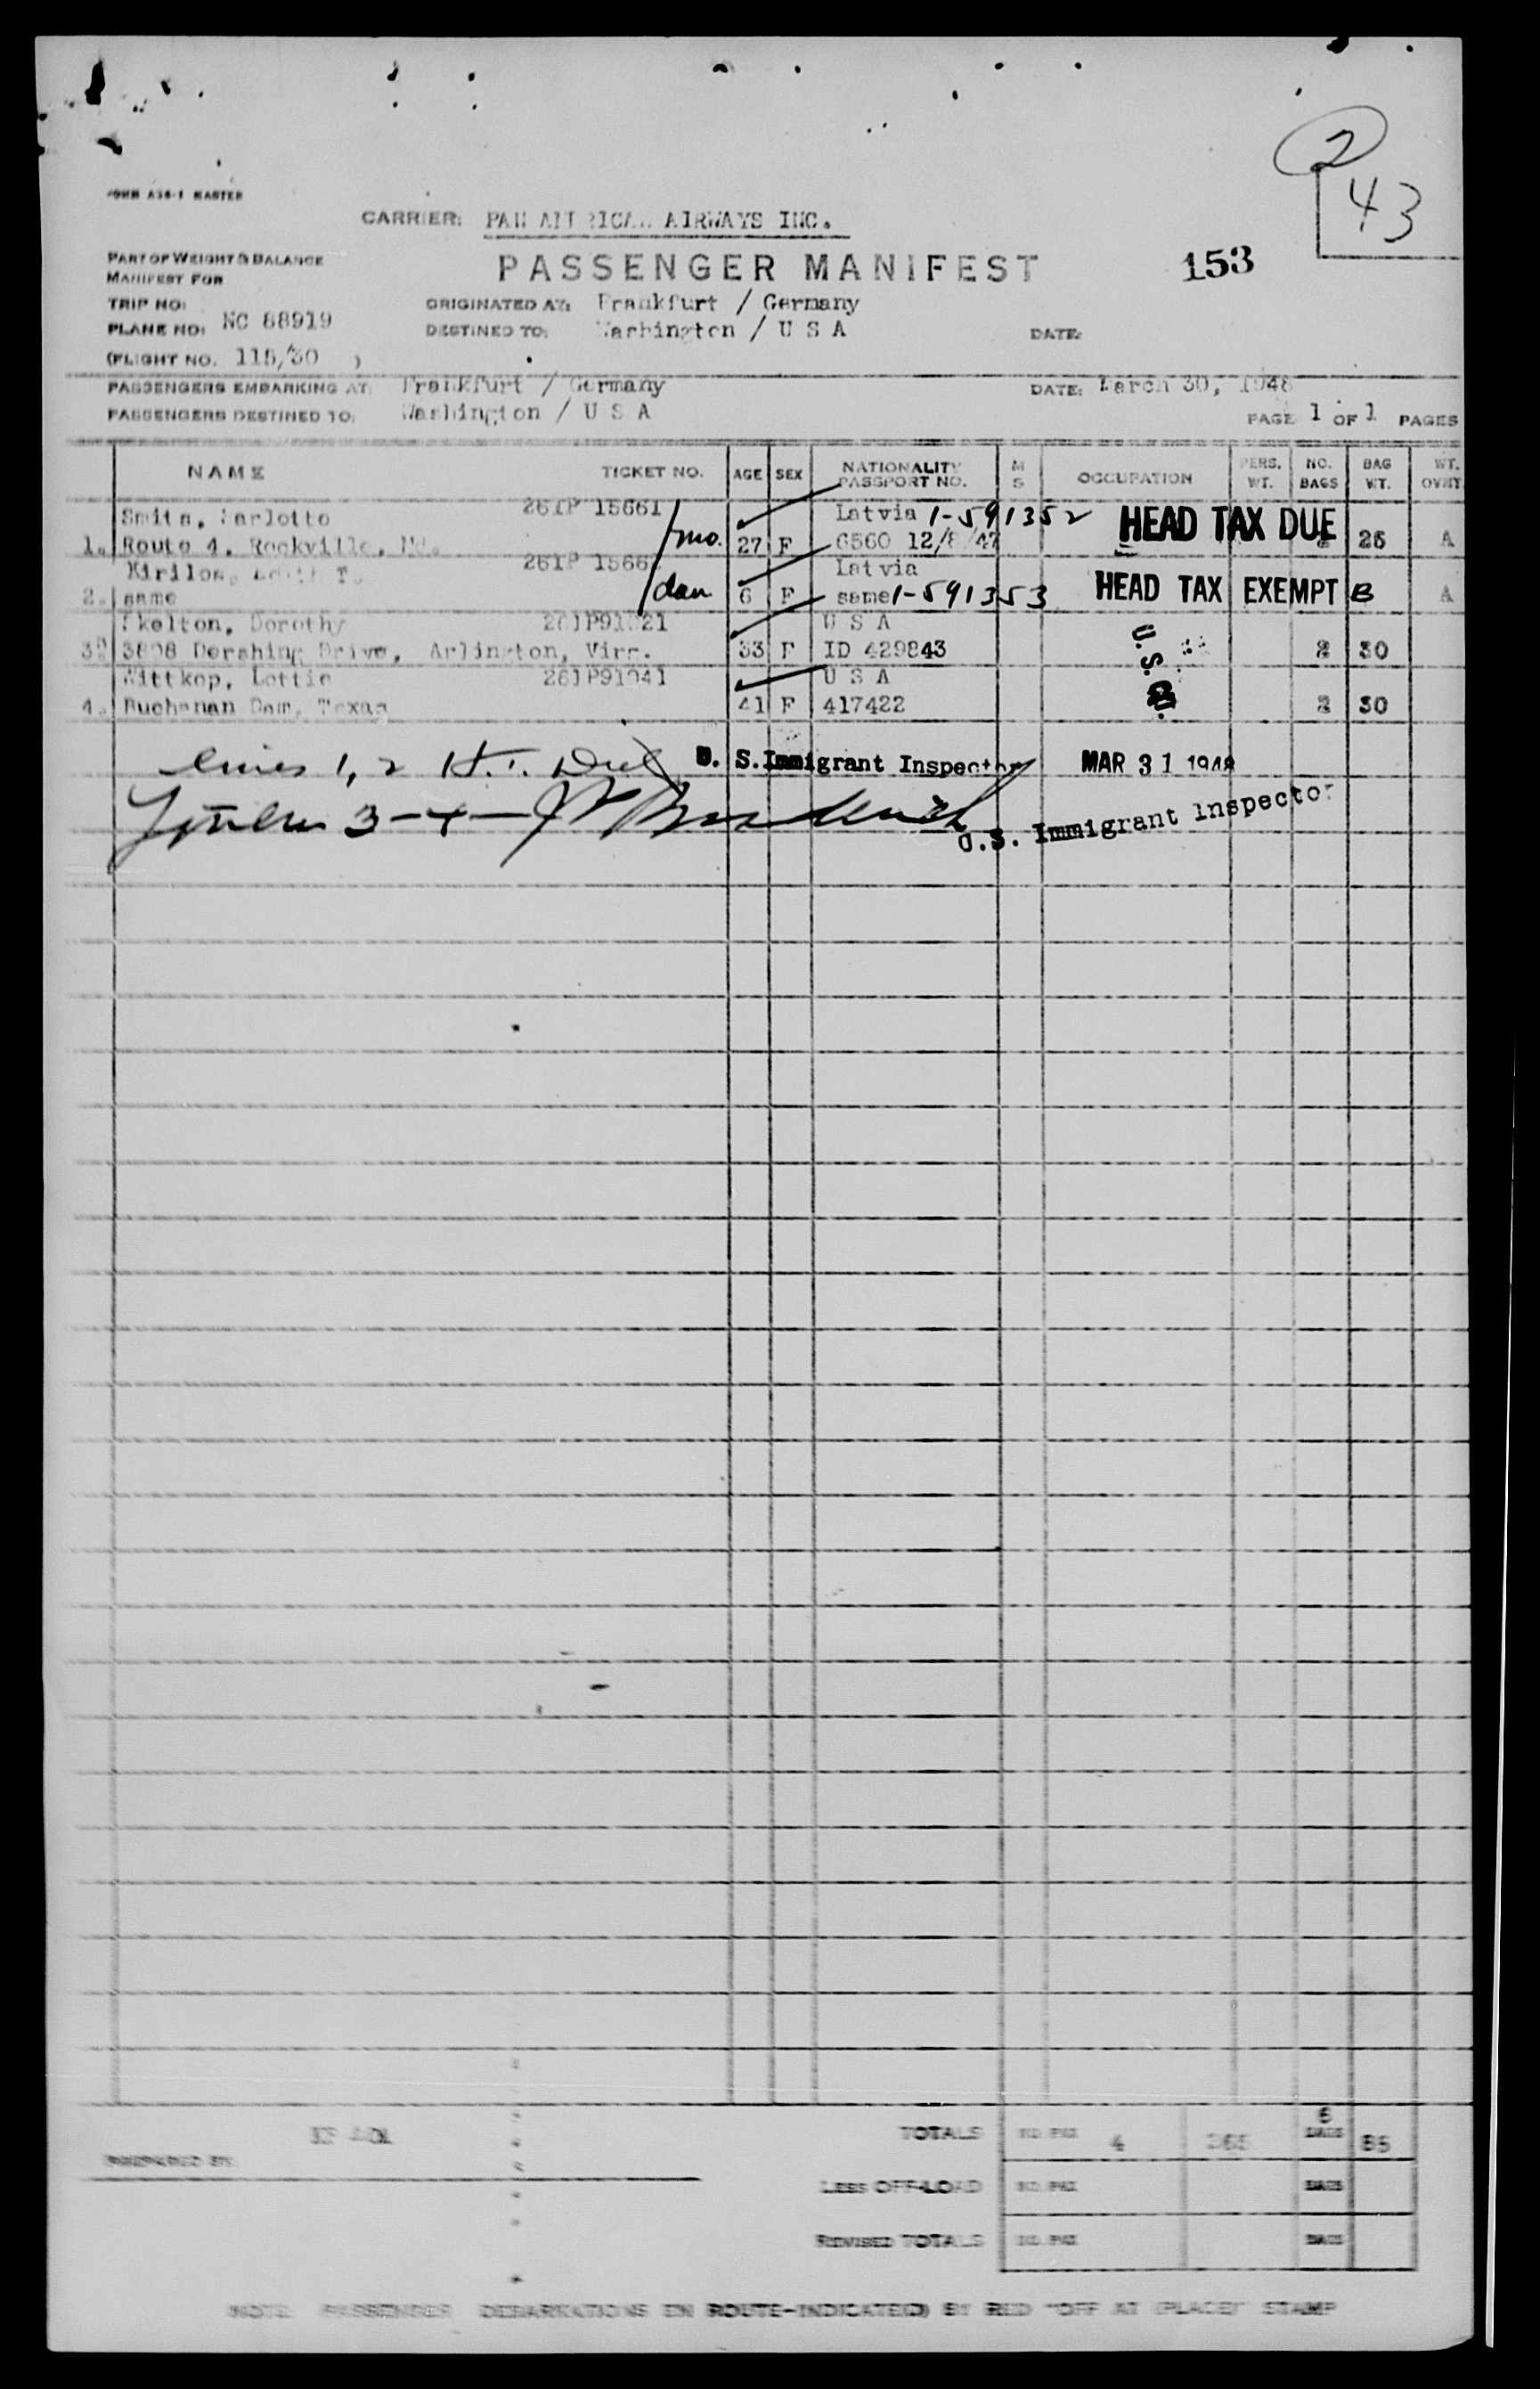 2
43
FORM A36-1 MASTER
CARRIER: PAN AMERICAN AIRWAYS INC.
PART OF WEIGHT & BALANCE
MANIFEST FOR
PASSENGER MANIFEST
153
TRIP NO:
ORIGINATED AT: Frankfurt / Germany
PLANE NO: NC 88919
DESTINED TO: Washington / U S A
DATE:
(FLIGHT NO. 115/30 )
PASSENGERS EMBARKING AT: Frankfurt / Germany
DATE: March 30, 1948
PASSENGERS DESTINED TO: Washington / U S A
PAGE 1 OF 1 PAGES
NAME TICKET NO. AGE SEX NATIONALITY PASSPORT NO. M S OCCUPATION PERS. WT. NO. BAGS BAG WT. WT. OVWT.
Smits, Marlotte 261P 15661 Latvia 1-591352 HEAD TAX DUE
1. Route 4, Rockville, Md. mo. 27 F 6560 12/8/47 25 A
Kirilow, 261P 1566 Latvia
2. same dau 6 F same 1-591353 HEAD TAX EXEMPT B A
Skelton, Dorothy U S A
3. 3808 Pershing Drive, Arlington, Virg. 33 F ID 429843 2 30
Wittkop, Lottie 261P91041 U S A
4. Buchanan Dam, Texas 41 F 417422 2 30
U.S.
lines 1, 2 H.T. Due
U. S. Immigrant Inspector
MAR 31 1948
3-4-
U.S. Immigrant Inspector
PREPARED BY:
TOTALS NO. PAX 4 365 6 BAGS 85
LESS OFF-LOAD NO. PAX BAGS
REVISED TOTALS NO. PAX BAGS
NOTE PASSENGER DEBARKATIONS EN ROUTE-INDICATE(D) BY RED "OFF AT (PLACE)" STAMP